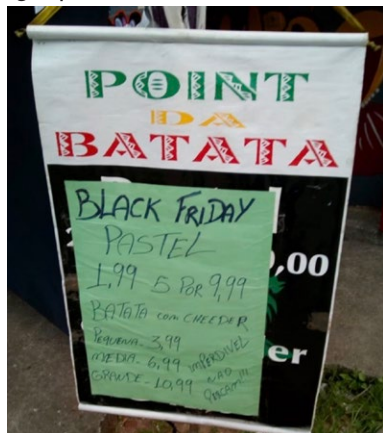 POINT
DA
BATATA
BLACK FRIDAY
PASTEL
1,99 5 POR 9,99
,00
BATATA com CHEEDER
PEQUENA- 3,99
MEDIA- 6,99 IMPERDIVEL
er
GRANDE- 10,99 NÃO !!!